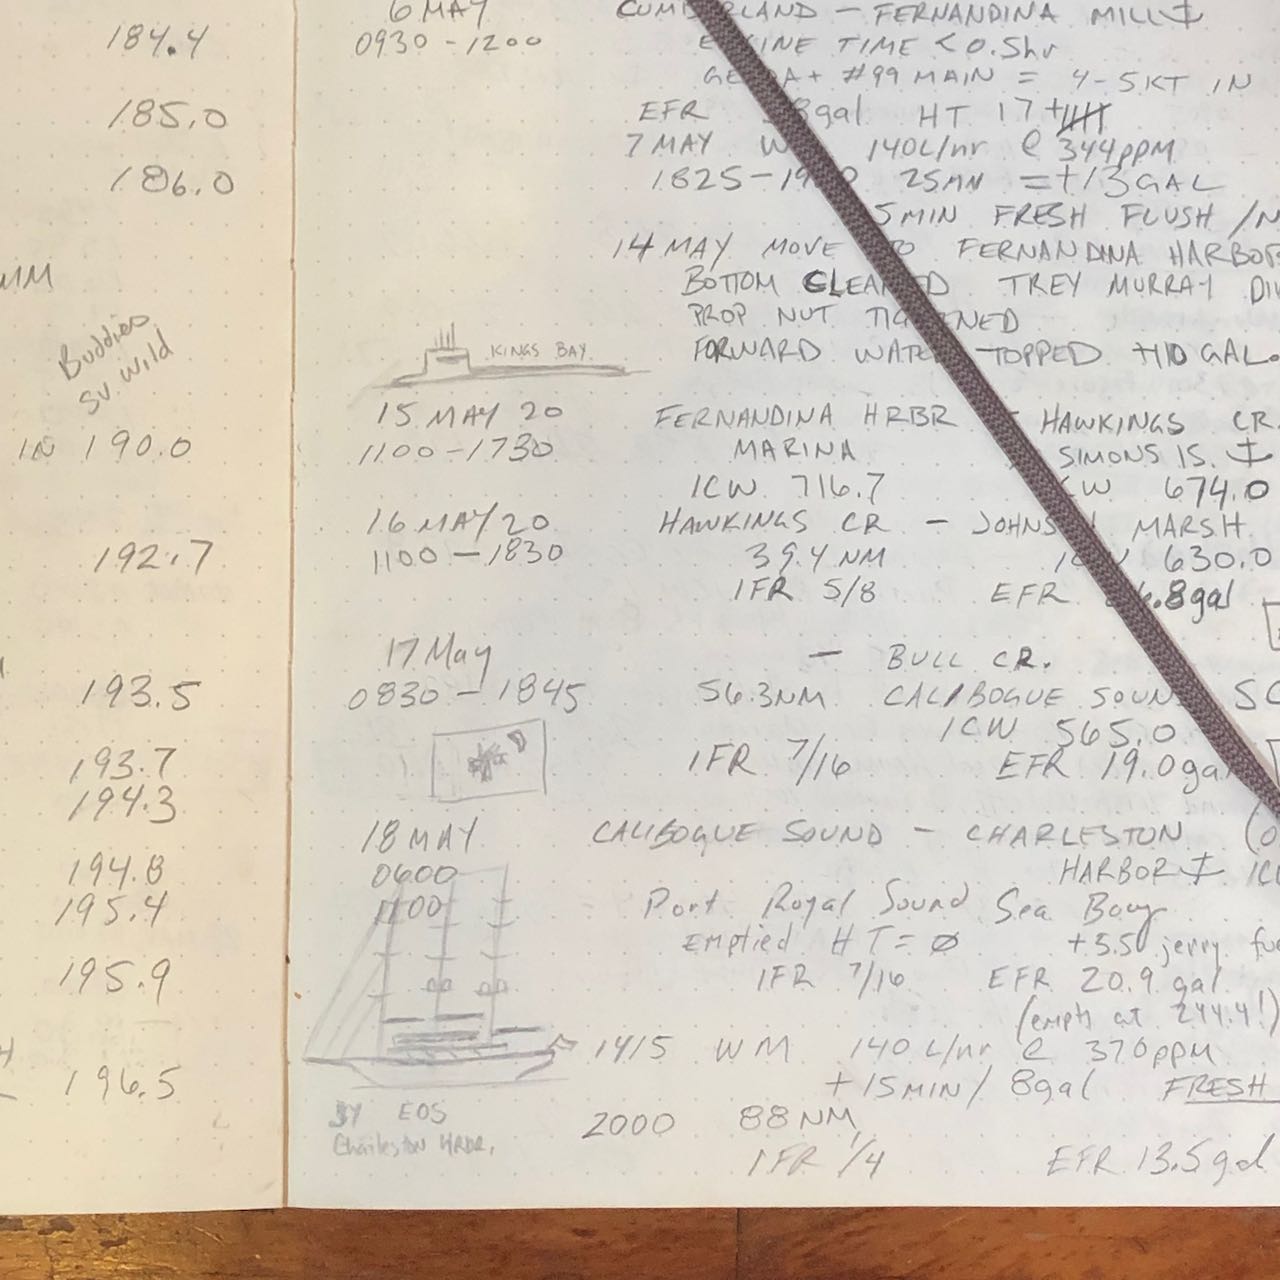 184.4
185.0
186.0
Buddies
SV. Wild
IN 190.0
192.7
193.5
193.7
194.3
194.8
195.4
195.9
196.5
6 MAY CUMBERLAND - FERNANDINA MILL
0930 - 1200 ENGINE TIME < 0.5hr
GENOA + #99 MAIN = 4-5KT IN
EFR gal HT 17+
7 MAY 140L/hr @ 344ppm
1825-19 25MN = +13 GAL
5 MIN FRESH FLUSH
14 MAY MOVE TO FERNANDINA HARBOR
BOTTOM CLEANED TREY MURRAY
PROP NUT TIGHTENED
KINGS BAY FORWARD WATER TOPPED +10 GAL.
15 MAY 20 FERNANDINA HRBR - HAWKINGS CR.
1100-1730 MARINA SIMONS IS.
ICW 716.7 ICW 674.0
16 MAY 20 HAWKINGS CR - JOHNSON MARSH
1100-1830 39.4 NM ICW 630.0
IFR 5/8 EFR 6.8gal
17 May - BULL CR.
0830 - 1845 56.3NM CALIBOGUE SOUND SC
ICW 565.0
IFR 7/16 EFR 19.0gal
18 MAY CALIBOGUE SOUND - CHARLESTON
0600 HARBOR
1100 Port Royal Sound Sea Buoy
emptied HT = Ø +5.5 jerry
IFR 7/16 EFR 20.9 gal
(empty at 244.4!)
1415 WM 140 L/hr @ 370ppm
+15MIN/8gal FRESH
SY EOS
Charleston HRBR.
2000 88 NM
IFR 1/4 EFR 13.5gal